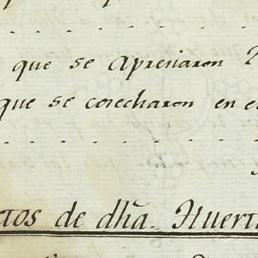 que se Apreciaron
que se cosecharon en e
tos de dha. Huert